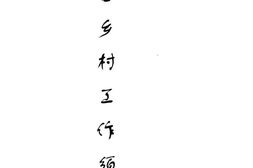 乡村工作须